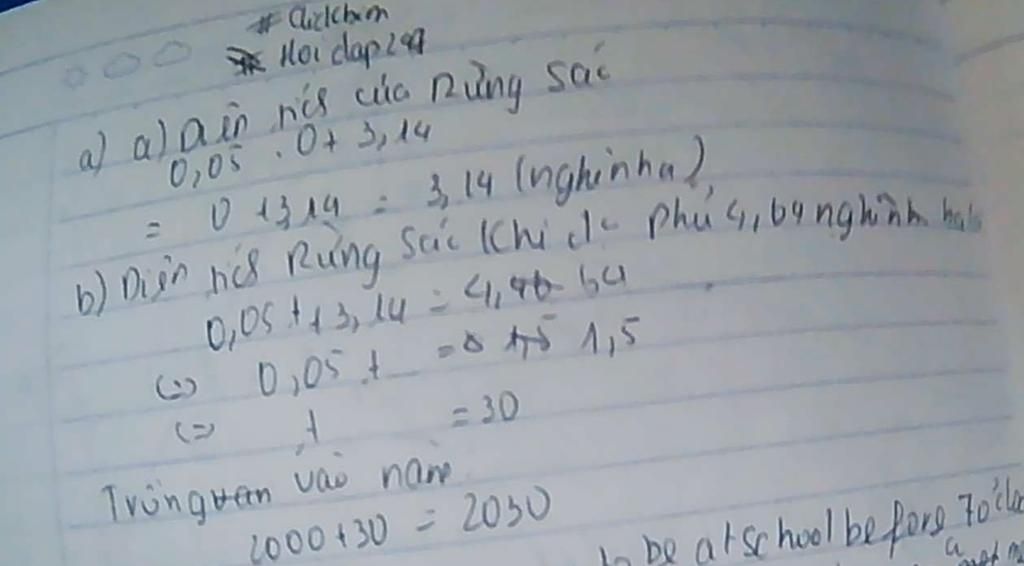 # Clickbim
* Hoi dap 247
a) a) Diện tích của Rừng Sác
0,05 . 0 + 3,14
= 0 + 3,14 = 3,14 (nghìn ha)
b) Diện tích Rừng Sác khi đc phủ 4,64 nghìn ha
0,05t + 3,14 = 4,64
(=) 0,05 t = 1,5
(=) t = 30
Trùng vào năm
2000 + 30 = 2030
to be at school before 7 o'